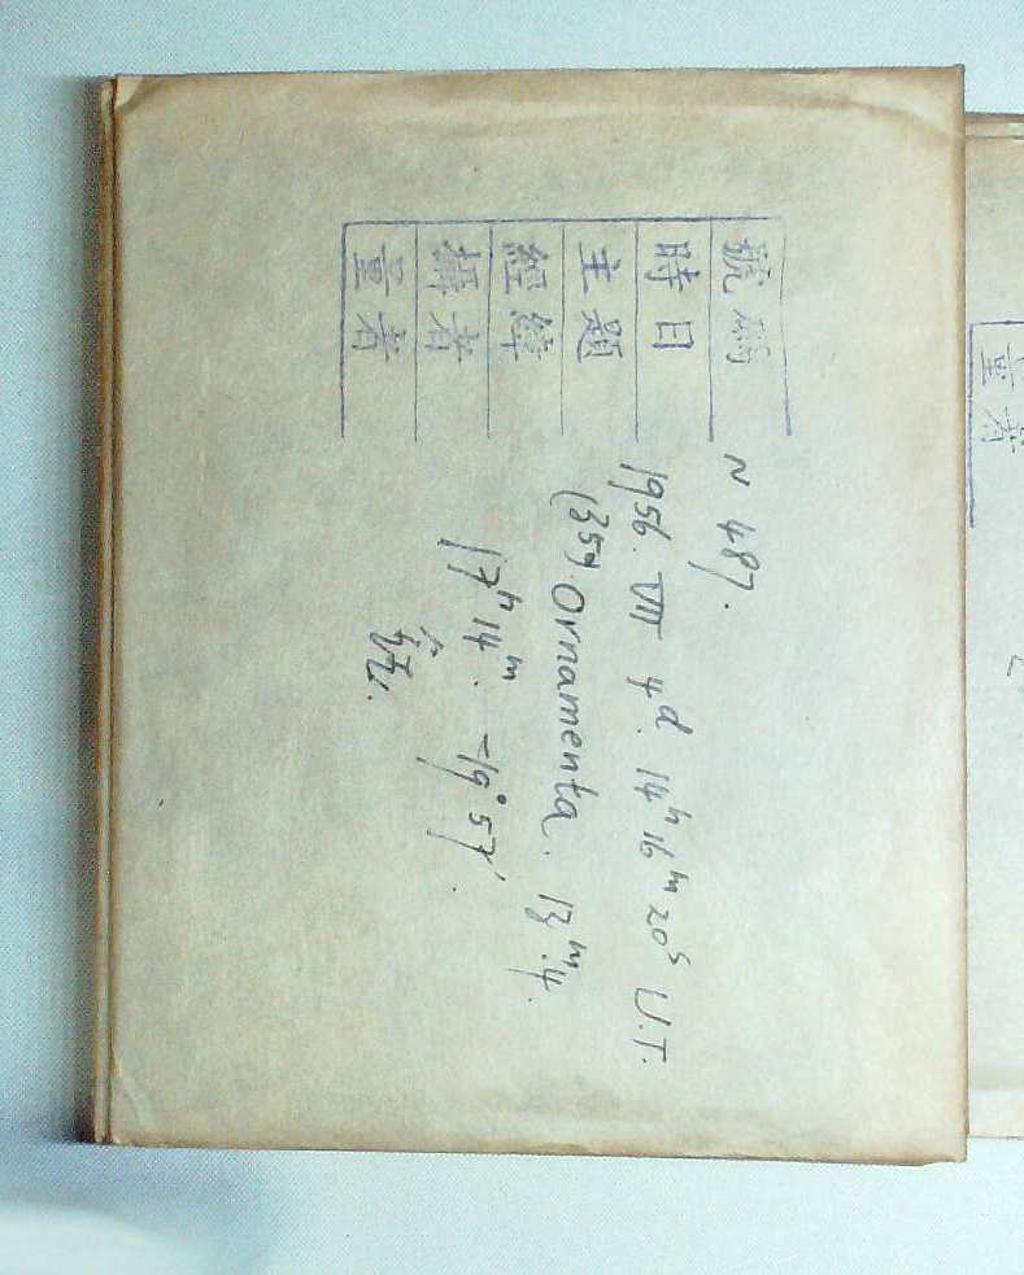 號碼 N 487.
時日 1956. VII 4d. 14h 16m 20s U.T.
主題 (350) Ornamenta. 13m.4.
經緯 17h 14m. -19° 57'.
攝者
量者
量者